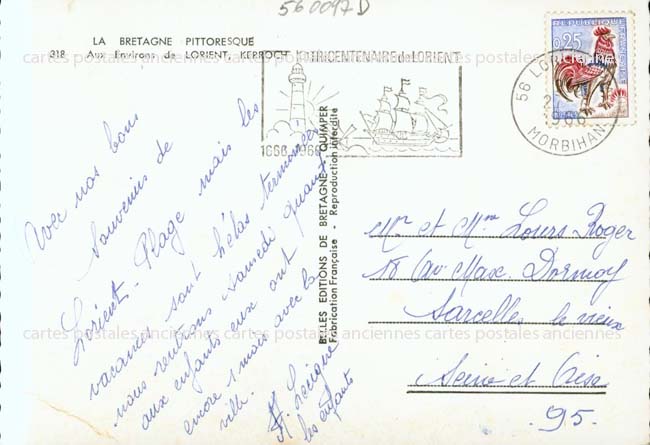 560097D
LA BRETAGNE PITTORESQUE
318 Aux Environs de LORIENT, KERROCH
TRICENTENAIRE de LORIENT
1666 1966
REPUBLIQUE FRANÇAISE
0,25
56 LORIENT
1966
MORBIHAN
BELLES EDITIONS DE BRETAGNE - QUIMPER
Fabrication Française - Reproduction interdite
Avec nos bons
souvenirs de
Lorient-Plage mais les
vacances sont hélas terminées
nous rentrons samedi quant
aux enfants eux ont
encore 1 mois avec la
ville.
les enfants
Mr et Mme Louis Roger
18 Av Max. Dormoy
Sarcelles le vieux
Seine et Oise
95.
cartes postales anciennes cartes postales anciennes cartes postales anciennes
cartes postales anciennes cartes postales anciennes cartes postales anciennes